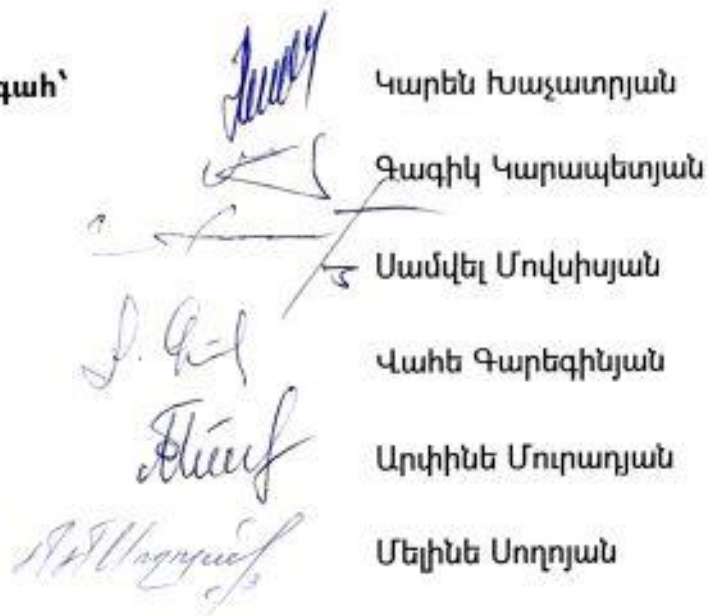 գահ՝ Կարեն Խաչատրյան
Գագիկ Կարապետյան
Սամվել Մովսիսյան
Վահե Գարեգինյան
Արփինե Մուրադյան
Մելինե Սողոյան